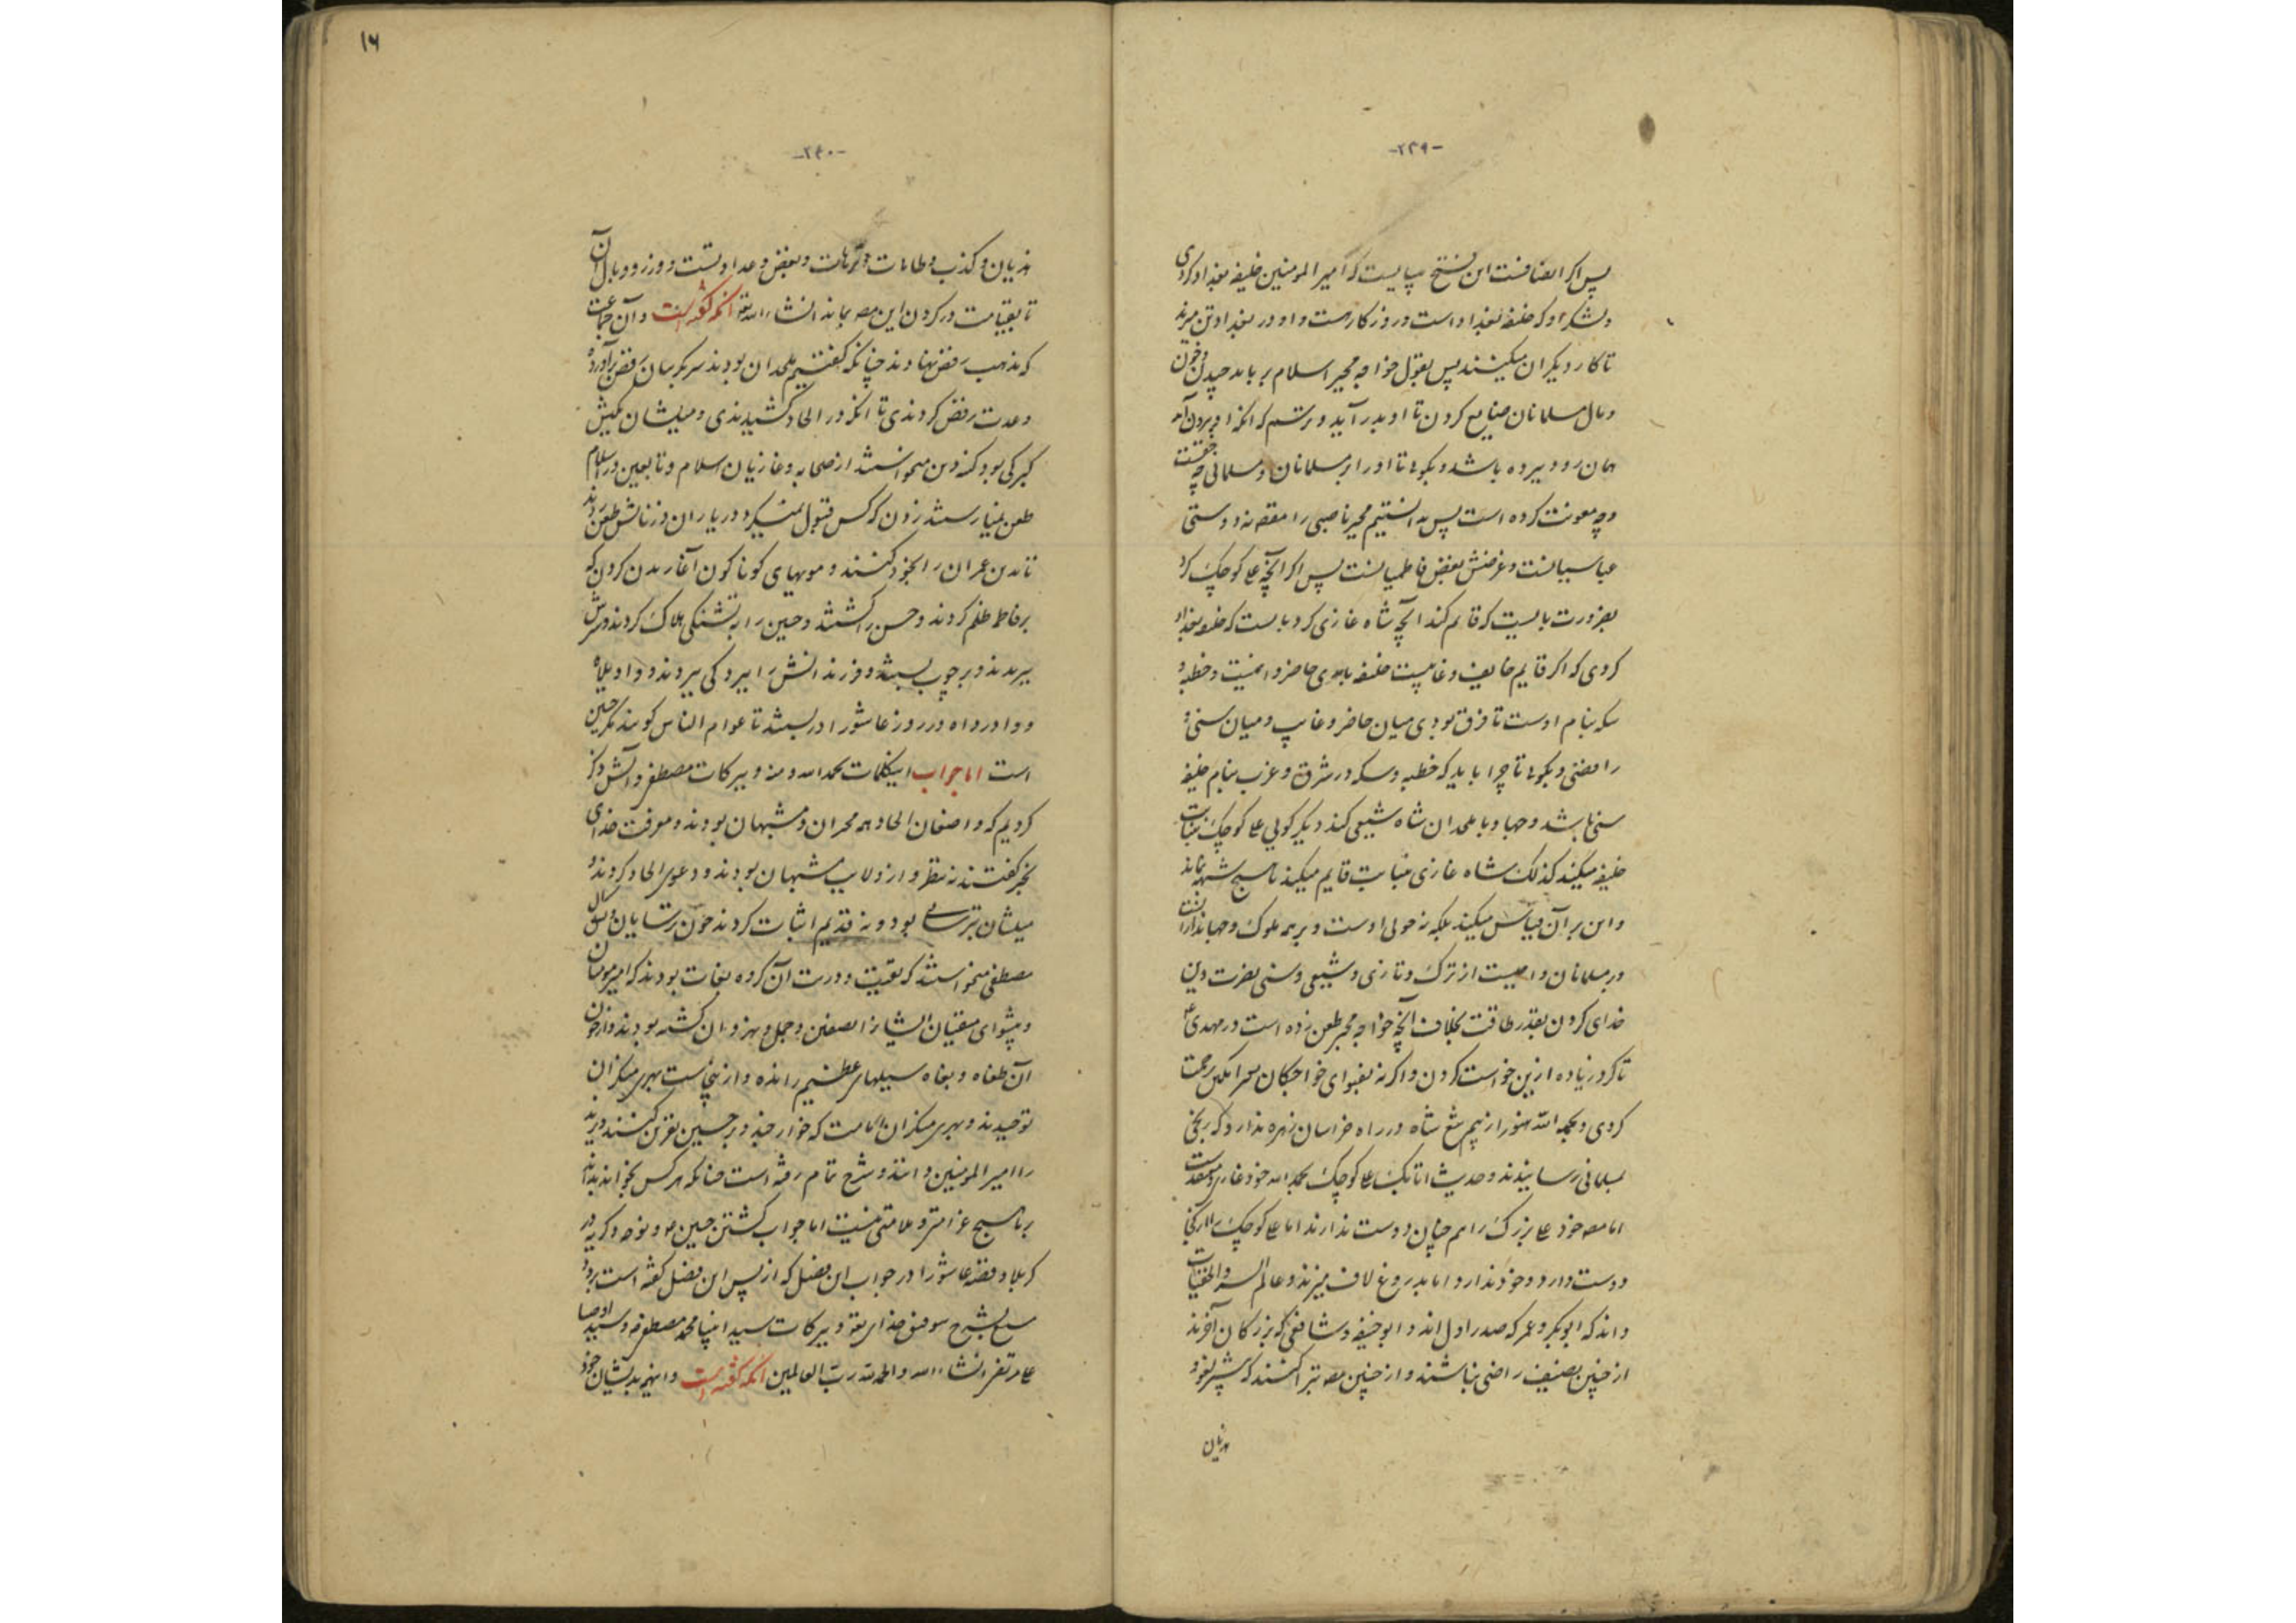 -۲۳۹-
پس اگر انصافست این فتح بپایست که امیر المومنین خلیفه بغداد کردی
و لشکر او که خلیفه بغداد است و روزگار است و او در بغداد تن میزند
تا کار دیگران میکنند پس بقول خواجه مجبر اسلام بر باید چیدن و خون
و مال مسلمانان ضایع کردن تا او بدر آید و ترسم که آنگه او بیرون آمد
همان رود برده باشد و بگوید تا او را بر مسلمانان و مسلمانی چه حقست
و چه معونت کرده است پس بدانستیم مجبر ناصبی را مقصد نه دوستی
عباسیانست و غرضش بغض فاطمیانست پس اگر آنچه علی کوچک کرد
بضرورت بایست که قائم کند آنچه شاه غازی کرد بایست که خلیفه بغداد
کردی که اگر قایم خایف و غایبست خلیفه باری حاضر و ایمنست و خطبه و
سکه بنام اوست تا فرق بودی میان حاضر و غایب و میان سنی و
رافضی و بگوید تا چرا باید که خطبه و سکه در شرق و غرب بنام خلیفه
سنی باشد و جهاد با ملحدان شاه شیعی کند دیگر گویی علی کوچک بنیابت
خلیفه میکند کذلک شاه غازی بنیابت قایم میکند تا هیچ شبهه نماند
و این بر آن قیاس میکند بلکه نه حولی اوست و بر همه ملوک و جهانداران
و بر مسلمانان واجبست از ترک و تازی و شیعی و سنی نصرت دین
خدای کردن بقدر طاقت بخلاف آنچه خواجه مجبر طعن زده است در مهدی ع
تا کرد زیاده ازین خواست کردن و اگر نه بفتوای خواجگان سرا
کردی و بحمد الله هنوز از بیم تیغ شاه در راه خراسان زهره ندارد که
بسلمانی رسانیدند و حدیث اتابک علی کوچک بحمد الله خود غازی و معتقدست
اما مصنف خود علی بزرگ را هم چنان دوست ندارند اما علی کوچک را
دوست دارد و خود ندارد اما بدروغ لاف میزند و عالم السر و الخفیات
داند که ابوبکر و عمر که صدر اول اند و ابو حنیفه و شافعی که بزرگان آخرند
از چنین تصنیف راضی نباشند و از چنین مصنف تبرا کنند که بیشتر بزور
هذیان
۱۶
-۲۴۰-
هذیان و کذب و طامات و ترهات و بغض و عداوتست و وزر و وبال آن
تا بقیامت در گردن این مصنف بماند انشاء الله تعالی آنکه گفته است و آن جماعت
که مذهب رفض نهادند چنانکه گفتیم ملحدان بودند سر بگریبان رفض برآورده
و عدت رفض کردندی تا آنگه در الحاد کشیدندی و میلشان بکیش
گبرکی بود کینه دین میخواستند از صحابه و غازیان اسلام و تابعین در اسلام
طعن نمییارستند زدن که کس قبول نمیکرد در یاران و زنانش طعن زدند
تا دین عمران را بخود کنند و مویهای گوناگون آغاریدن کردن که
بر فاطمه ظلم کردند و حسن را کشتند و حسین را به تشنگی هلاک کردند و سرش
ببریدند و بر چوب بستند و فرزندانش را ببردگی ببردند و واویلاه
و وا درداه در روز عاشورا در بستند تا عوام الناس گویند مگر چنین
است اما جواب اینکلمات بحمد الله و منه و ببرکات مصطفی و آلش ذکر
کردیم که واضعان الحاد همه مجبران و مشبهان بودند و معرفت خدای
بخبر گفتند نه بنظر و از ولایت مشبهان بودند و دعوی الحاد کردند و
میلشان بترسائی بود و نه قدیم اثبات کردند چون ترسایان و کین آل
مصطفی میخواستند که بقیت و ورثت آن گروه بغات بودند که امیر مومنان
و پیشوای متقیان ایشانرا بصفین و جمل و نهروان کشته بودند و از خون
آن طغاه و بغاه سیلهای عظیم رانده و ازینجاست بهری منکران
توحیدند و بهری منکران امامت که خوارجند و بر حسین نفرین کنند و یزید
را امیر المومنین دانند و شرح تمام رفته است چنانکه هر کس بخواند بداند
بر ما هیچ غرامتی و ملامتی نیست اما جواب کشتن حسین و نوحه و گریه در
کربلا و قصه عاشورا در جواب این فصل که از پس این فصل گفته است برود
بشرح بتوفیق خدای تعالی و ببرکات سید انبیا محمد مصطفی و سید اوصیا
علی مرتضی انشاء الله و الحمد لله رب العالمین آنکه گفته است و این همه بدیشان خود